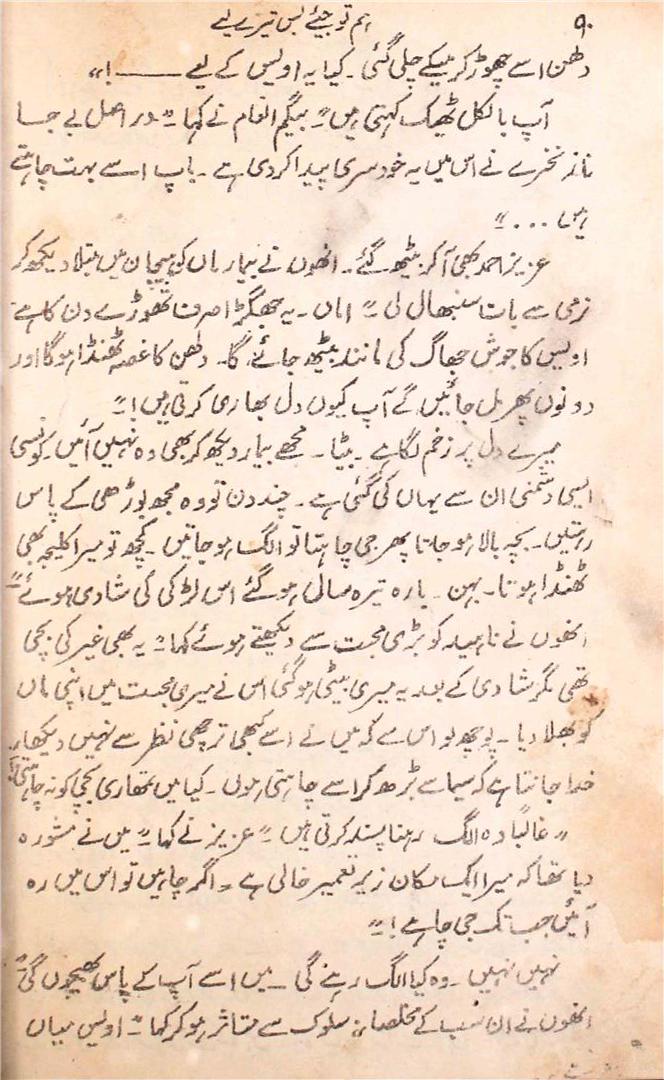 ۹۰
ہم تو جئے بس تیرے لیے
دلھن اسے چھوڑ کر میکے چلی گئی ۔ کیا یہ اویس کے لیے ــــــــ !"
آپ بالکل ٹھیک کہتی ہیں" بیگم انعام نے کہا " در اصل بے جا
ناز نخرے نے اس میں یہ خود سری پیدا کر دی ہے ۔ باپ اسے بہت چاہتے
ہیں ... "
عزیز احمد بھی آ کر بیٹھ گئے ۔ انھوں نے بیمار ماں کو ہیجان میں مبتلا دیکھ کر
نرمی سے بات سنبھال لی " اماں ۔ یہ جھگڑا صرف تھوڑے دن کا ہے
اویس کا جوش جھاگ کی مانند بیٹھ جائے گا ۔ دلھن کا غصہ ٹھنڈا ہوگا اور
دونوں پھر مل جائیں گے آپ کیوں دل بھاری کرتی ہیں !"
میرے دل پر زخم لگا ہے ۔ بیٹا ۔ مجھے بیمار دیکھ کر بھی وہ نہیں آئیں ۔ کونسی
ایسی دشمنی ان سے یہاں کی گئی ہے ۔ چند دن تو وہ مجھ بوڑھی کے پاس
رہتیں ۔ بچہ بالا ہو جاتا پھر جی چاہتا تو الگ ہو جاتیں ۔ کچھ تو میرا کلیجہ بھی
ٹھنڈا ہوتا ۔ بہن ۔ بارہ تیرہ سال ہو گئے اس لڑکی کی شادی ہوئے "
انھوں نے ناہید کو بڑی محبت سے دیکھتے ہوئے کہا " یہ بھی غیر کی بچی
تھی مگر شادی کے بعد یہ میری بیٹی ہو گئی اس نے میری محبت میں اپنی ماں
کو بھلا دیا ۔ پوچھ لو اس سے کہ میں نے اسے کبھی ترچھی نظر سے نہیں دیکھا ۔
خدا جانتا ہے کہ سیما سے بڑھ کر اسے چاہتی ہوں ۔ کیا میں تمھاری بچی کو نہ چاہتی !"
" غالباً وہ الگ رہنا پسند کرتی ہیں " عزیز نے کہا " میں نے مشورہ
دیا تھا کہ میرا ایک مکان زیر تعمیر خالی ہے ۔ اگر چاہیں تو اس میں رہ
آئیں جب تک جی چاہے !"
نہیں نہیں ۔ وہ کیا الگ رہے گی ۔ میں اسے آپ کے پاس بھیجوں گی "
انھوں نے ان سب کے مخلصانہ سلوک سے متاثر ہو کر کہا " اویس میاں